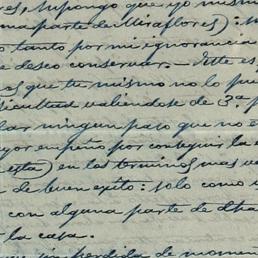 res, supongo que yo mism
ma parte de Miraflores):
o tanto por mi ignorancia
e deseo conservar. Este es
s que tu mismo no lo pue
ficultad valiendose de 3ª p
lar ningun paso que no e
yor empeño por conseguir la
esta) en los terminos mas ve
de buen exito: solo como
con alguna parte de dha
r la casa.
sin perdida de momen